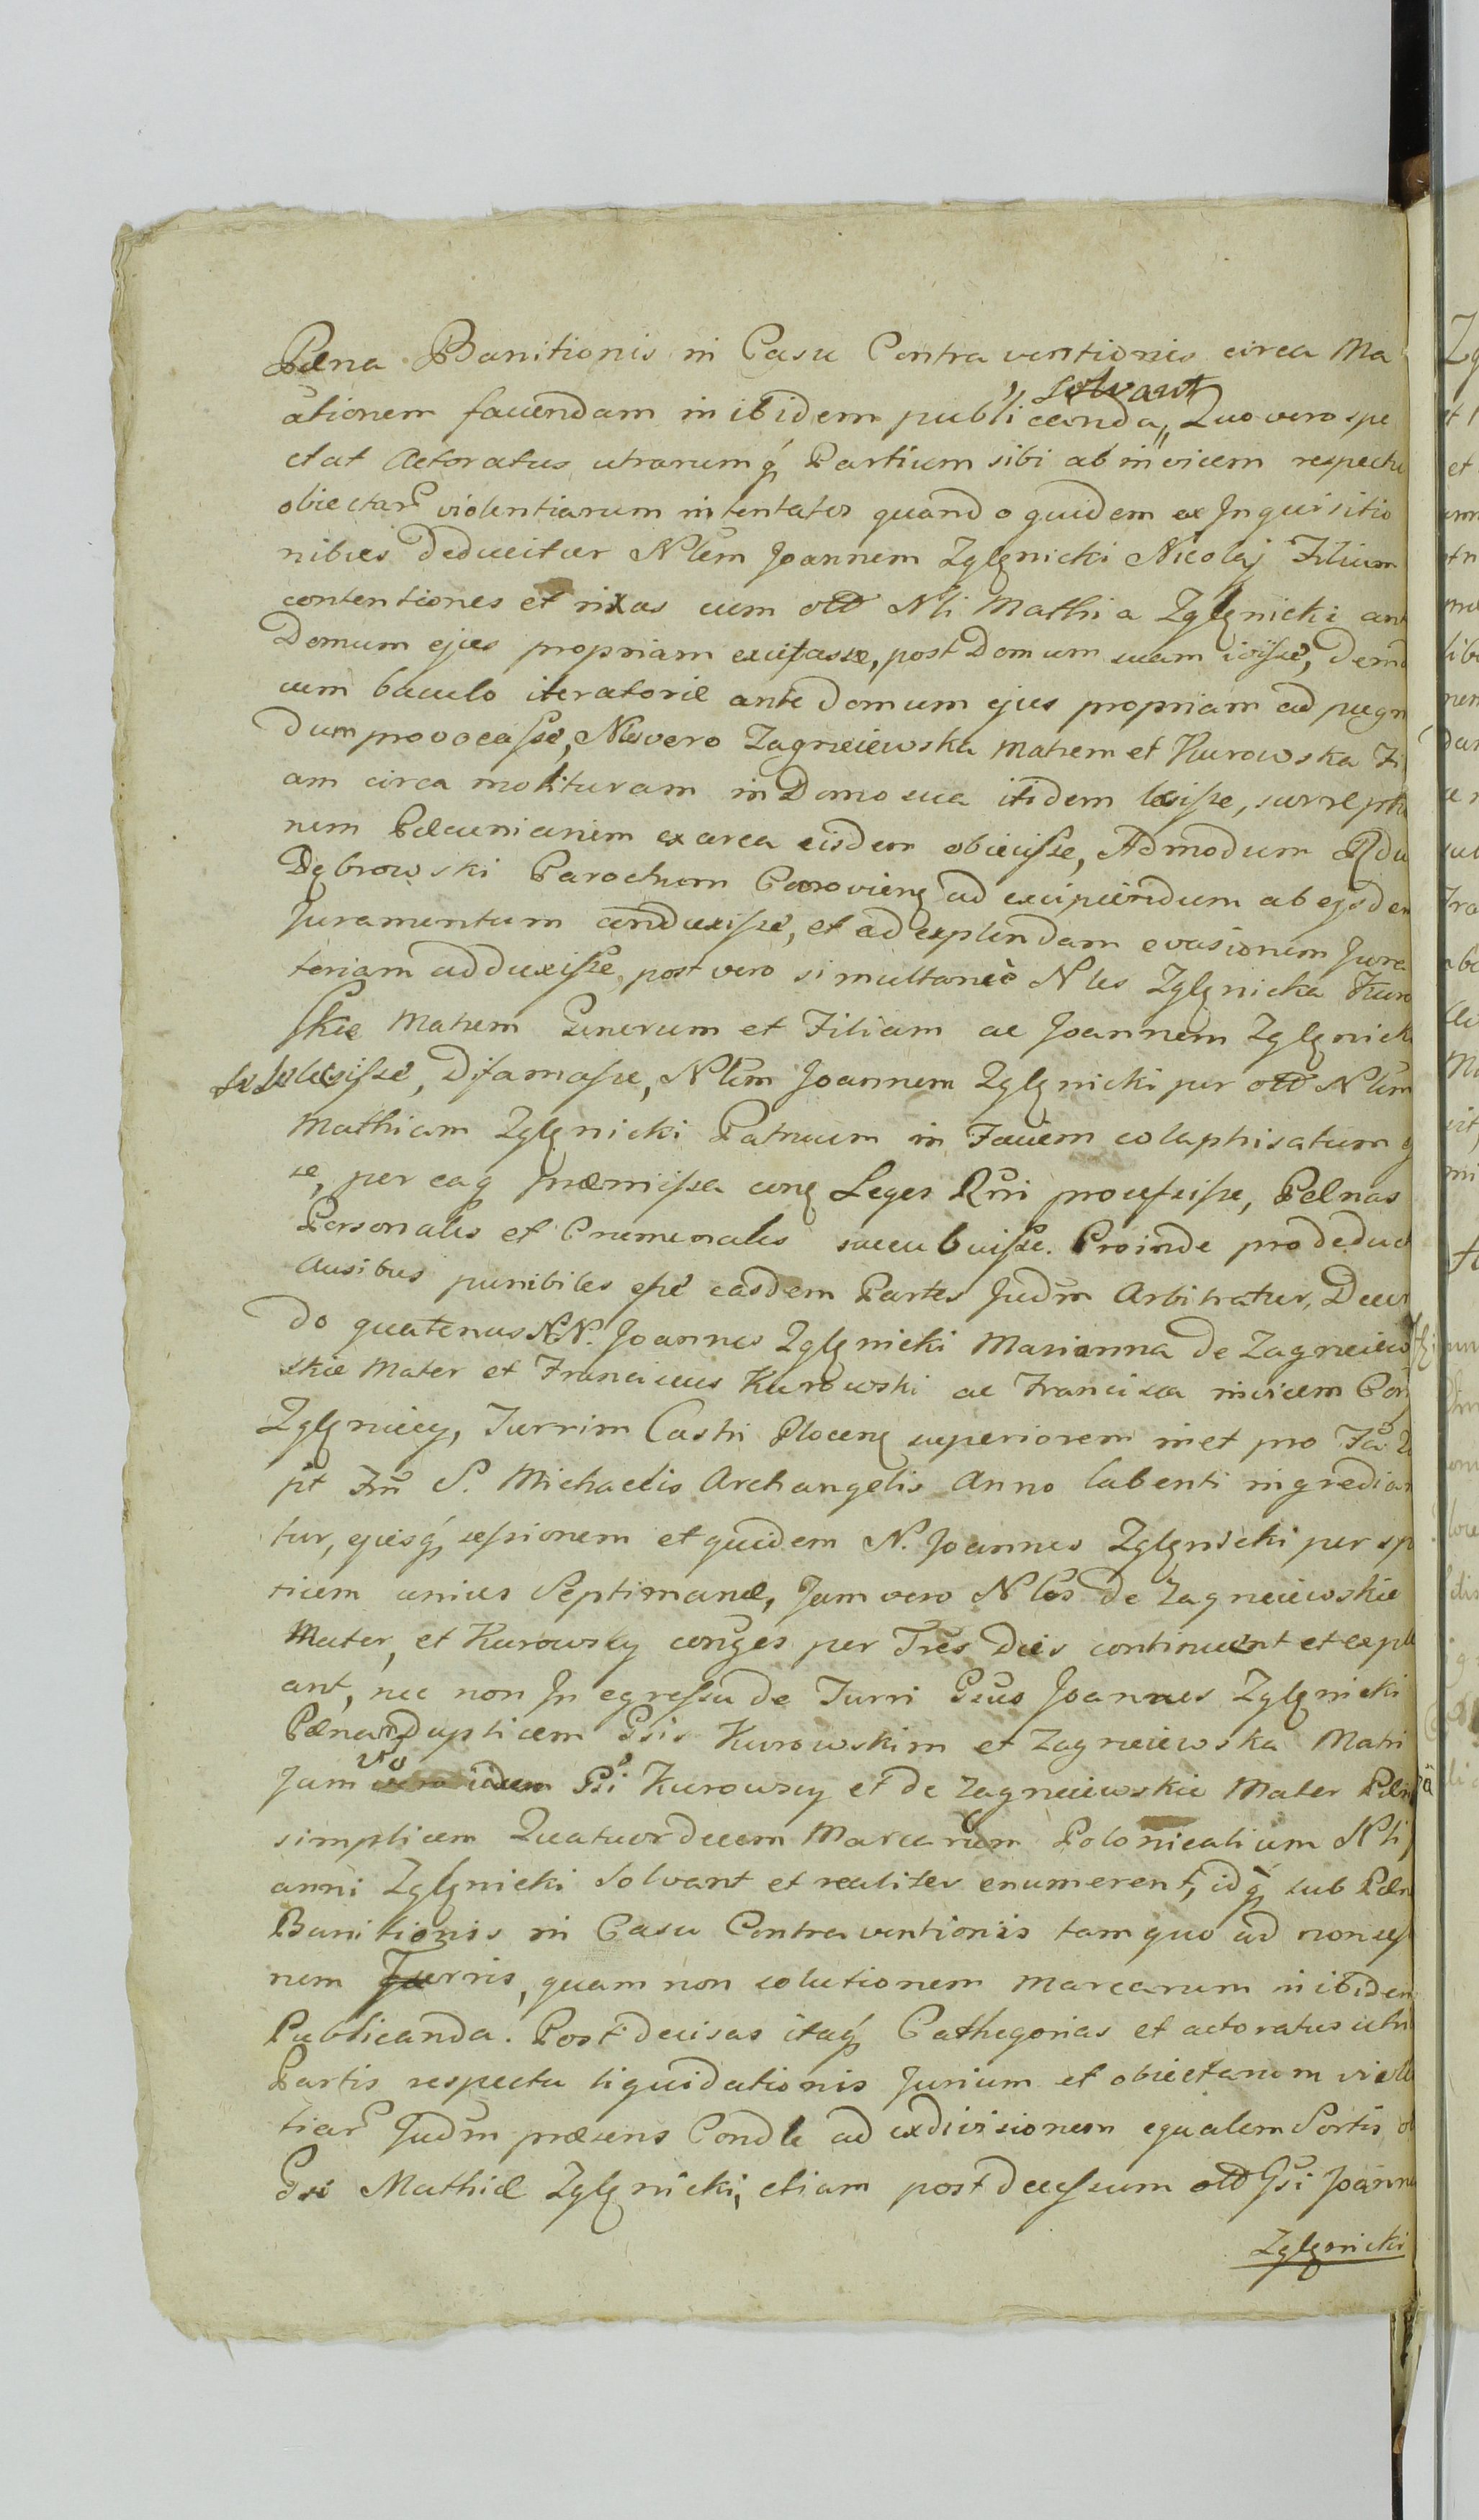 Pœna Banitionis in Casu Contraventionis circa Ma
solvant
ationem facendam in ibidem publicanda,, Quo vero spe
ctat Actoratus utrarumq́ Partium sibi ab invicem respectu
obiectar violentiarum intentatos quando quidem ex Inquisitio
nibus deducitur Nlem Joannem Zglęnicki Nicolaj Filium
contentiones et rixas cum olld Nli Mathia Zglęnicki ant
Domum ejus propriam excitasse, post Domum suam ivisse, dem
cum baculo iteratorie ante domum ejus propriam ad pugn
dum provocasse, Nles vero Zagrzeiewska Matrem et Kurowska Fi
am circa molituram in Domo sua itidem læsisse, surrepti
nem Pæcuniarum ex arca eisdem obiecisse, Admodum Rdu
Dębrowski Parochum ad excipiendum ab ejsdem
Juramentum conduxisse, et ad explendam evasionem Jura
toriam adduxisse, post vero simultanee Nles Zglęnicka Kuro
skie Matrem Generum et Filiam ac Joannem Zglęnick
læsisse, difamasse, Nlem Joannem Zglęnicki per olld Nlem
Mathiam Zglęnicki Patruum in Faciem colaphisatum
se, per eaq præmissa conę Leges Rni processisse, Pœlnas
Personales et Criminales succubuisse. Proinde pro deduct
Ausibus punibiles esse easdem Partes Judm Arbitratur, Decer
do quatenus N.N. Joannes Zglęnicki Marianna de Zagrzeiew
skie Mater et Franciscus Kurowski ac Francisca invicem Conj
Zglęniccy, Turrim Castri Plocenę superiorem inet pro
pt S. Michaelis Archangelis Anno labenti ingredian
tur, ejusq́ sessionem et quidem N. Joannes Zglęnicki per sp
tium unius Septimanæ, Jam vero Nles de Zagrzeiewskie
Mater, et Kurowscy conges per Tres Dies continuent et exple
ant, nec non In egressu de Turri Gsus Joannes Zglęnicki
Pœnam duplicem Gsis Kurowskim et Zagrzeiewska Matri
vo
Jam idem Gsi Kurowscy et de Zagrzeiewskie Mater Pœn
simplicem Quatuordecem Marcarum Polonicalium Nli
anni Zglęnicki Solvant et realiter enumerent, idq́ sub Pœn
Banitionis in Casu Contraventionis tam quo ad non ses
nem Turris, quam non solutionem marcarum in ibidem
Publicanda. Post decisas itaq́ Cathegorias et actoratus utri
Partis respectu liquidationis Jurium et obiectarum viole
tiar Judm præsens Condle ad exdivisionem equalem Sortis
Gsi Mathiæ Zglęnicki, etiam post decessum olld Gsi Joann
Zglęnicki